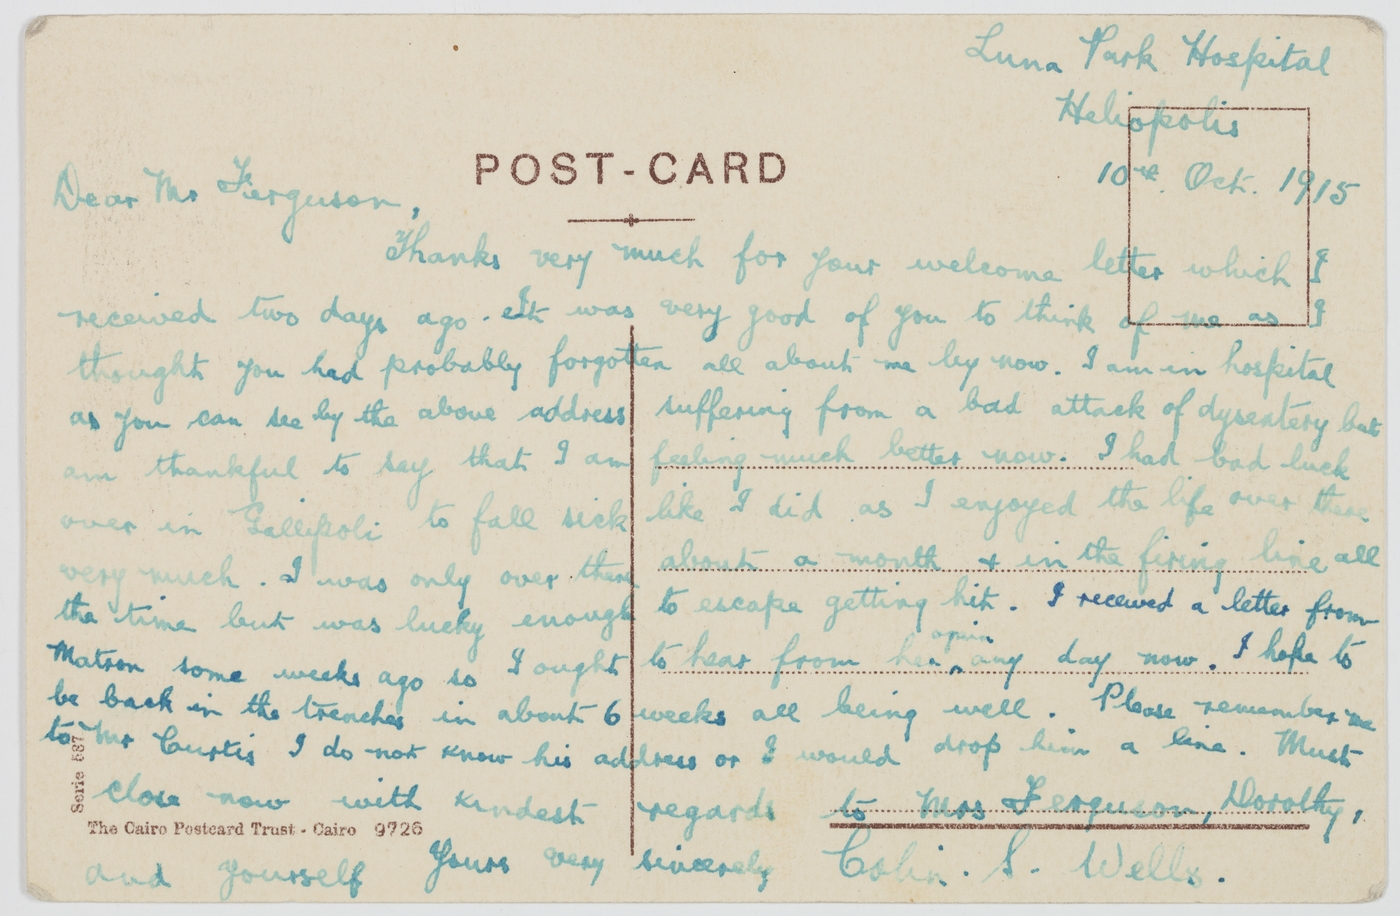 Luna Park Hospital
Heliopolis
10th. Oct. 1915
POST-CARD
Dear Mr Ferguson,
Thanks very much for your welcome letter which I
received two days ago. It was very good of you to think of me as I
thought you had probably forgotten all about me by now. I am in hospital
as you can see by the above address suffering from a bad attack of dysentery but
am thankful to say that I am feeling much better now. I had bad luck
over in Gallipoli to fall sick like I did as I enjoyed the life over there
very much. I was only over there about a month & in the firing line all
the time but was lucky enough to escape getting hit. I received a letter from
Matron some weeks ago so I ought to hear from her again any day now. I hope to
be back in the trenches in about 6 weeks all being well. Please remember me
to Mr Curtis I do not know his address or I would drop him a line. Must
close now with kindest regards to Mrs Ferguson, Dorothy,
and yourself Yours very sincerely Colin. S. Wells.
Serie 587
The Cairo Postcard Trust - Cairo 9726